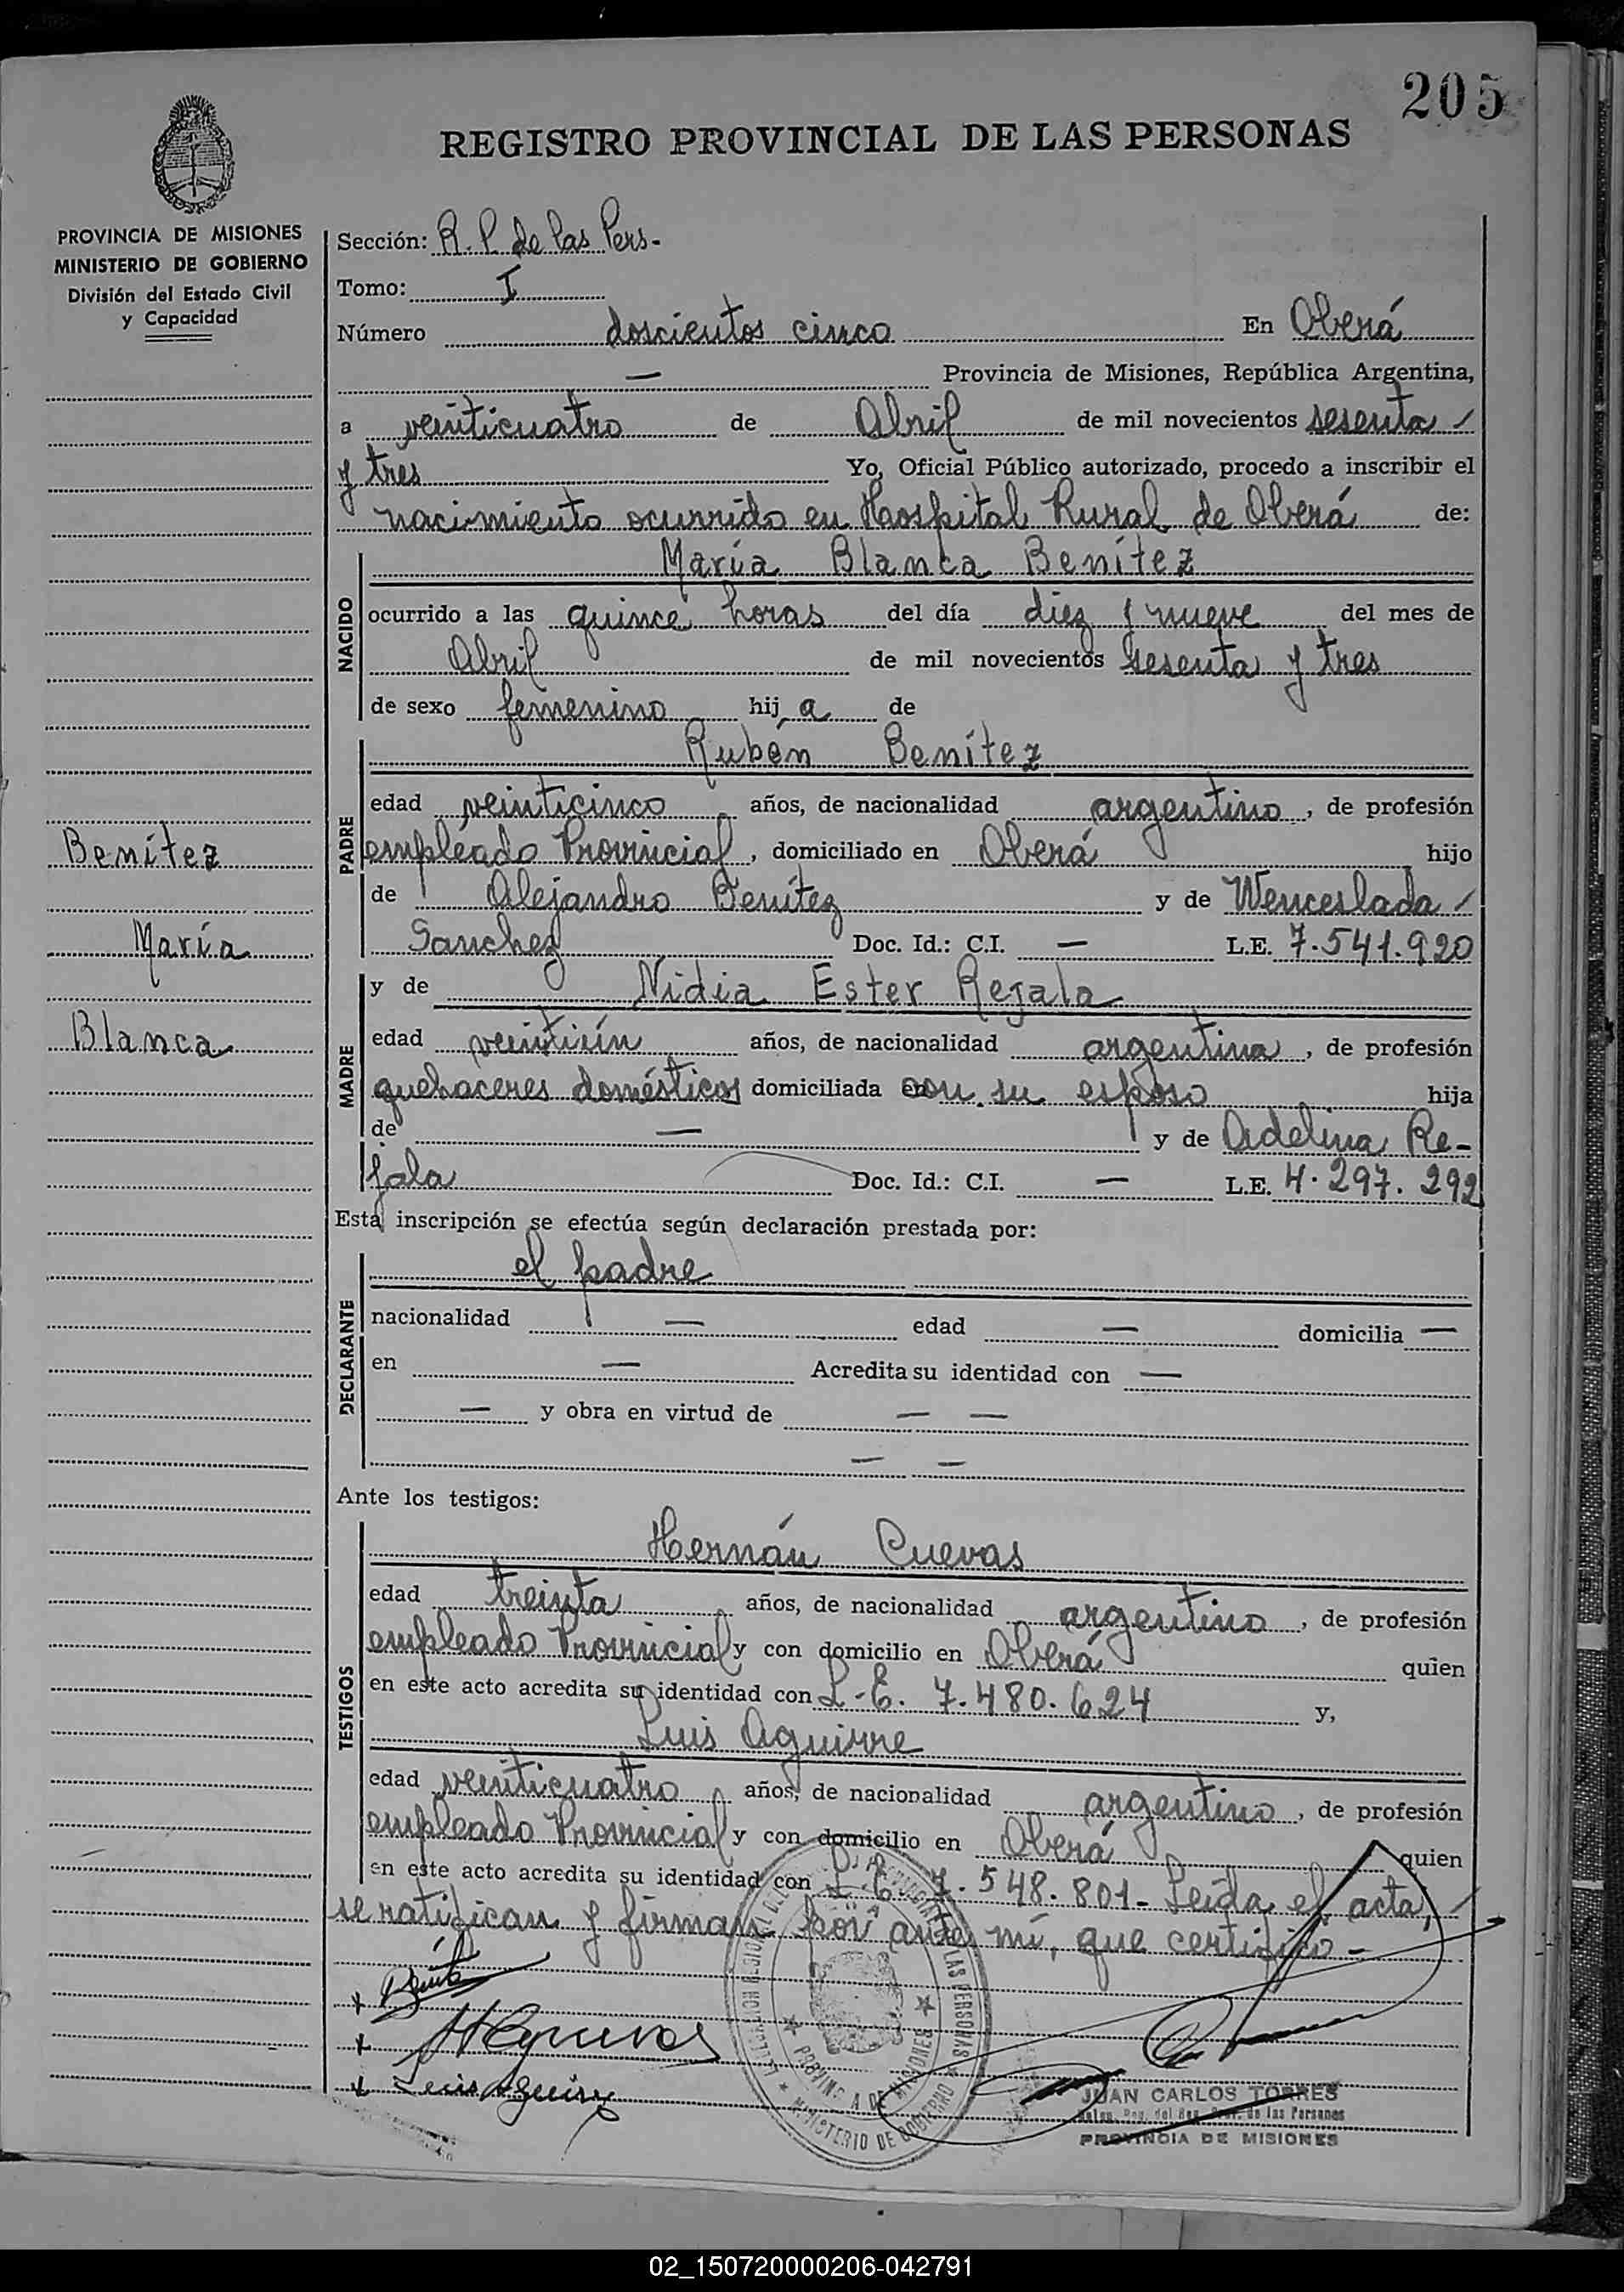 205
REGISTRO PROVINCIAL DE LAS PERSONAS
PROVINCIA DE MISIONES
MINISTERIO DE GOBIERNO
División del Estado Civil
y Capacidad
Sección: R. P. de las Pers-
Tomo: I
Número doscientos cinco En Oberá
— Provincia de Misiones, República Argentina,
a veinticuatro de Abril de mil novecientos sesenta
y tres Yo, Oficial Público autorizado, procedo a inscribir el
nacimiento ocurrido en Hospital Rural de Oberá de:
NACIDO
María Blanca Benítez
ocurrido a las quince horas del día diez y nueve del mes de
Abril de mil novecientos sesenta y tres
de sexo femenino hij a de
PADRE
Rubén Benítez
edad veinticinco años, de nacionalidad argentino, de profesión
empleado Provincial, domiciliado en Oberá hijo
de Alejandro Benítez y de Wenceslada
Sanchez Doc. Id.: C.I. — L.E. 7.541.920
Benítez
María
Blanca
MADRE
y de Nidia Ester Rejala
edad veintiún años, de nacionalidad argentina, de profesión
quehaceres domésticos domiciliada con su esposo hija
de — y de Adelina Re-
jala Doc. Id.: C.I. — L.E. 4.297.292
Esta inscripción se efectúa según declaración prestada por:
DECLARANTE
el padre
nacionalidad — edad — domicilia —
en — Acredita su identidad con —
— y obra en virtud de — —
— —
Ante los testigos:
TESTIGOS
Hernán Cuevas
edad treinta años, de nacionalidad argentino, de profesión
empleado Provincial y con domicilio en Oberá quien
en este acto acredita su identidad con L.E. 7.480.624 y,
Luis Aguirre
edad veinticuatro años, de nacionalidad argentino, de profesión
empleado Provincial y con domicilio en Oberá quien
en este acto acredita su identidad con L.E. 7.548.801- Leída el acta,
se ratifican y firman por ante mí, que certifico-
Luis Aguirre
LAS PERSONAS
PROVINCIA DE MISIONES
MINISTERIO DE GOBIERNO
JUAN CARLOS TORRES
de las Personas
PROVINCIA DE MISIONES
02_150720000206-042791